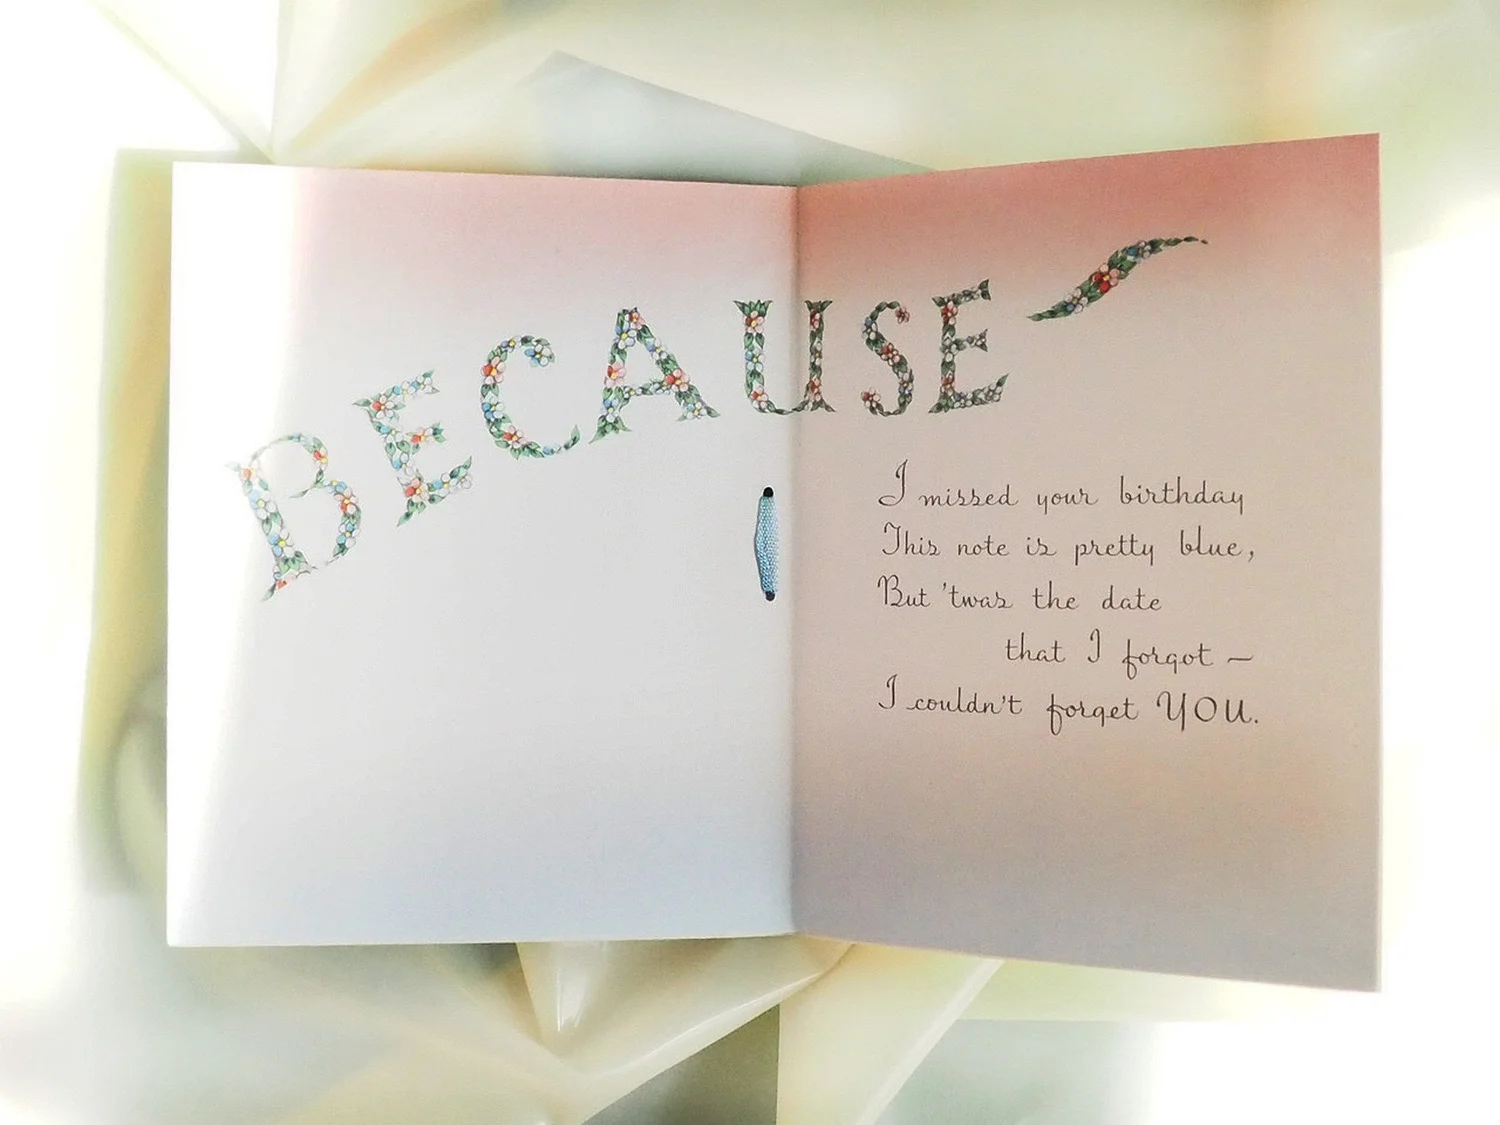 BECAUSE
I missed your birthday
This note is pretty blue,
But 'twas the date
that I forgot —
I couldn't forget YOU.